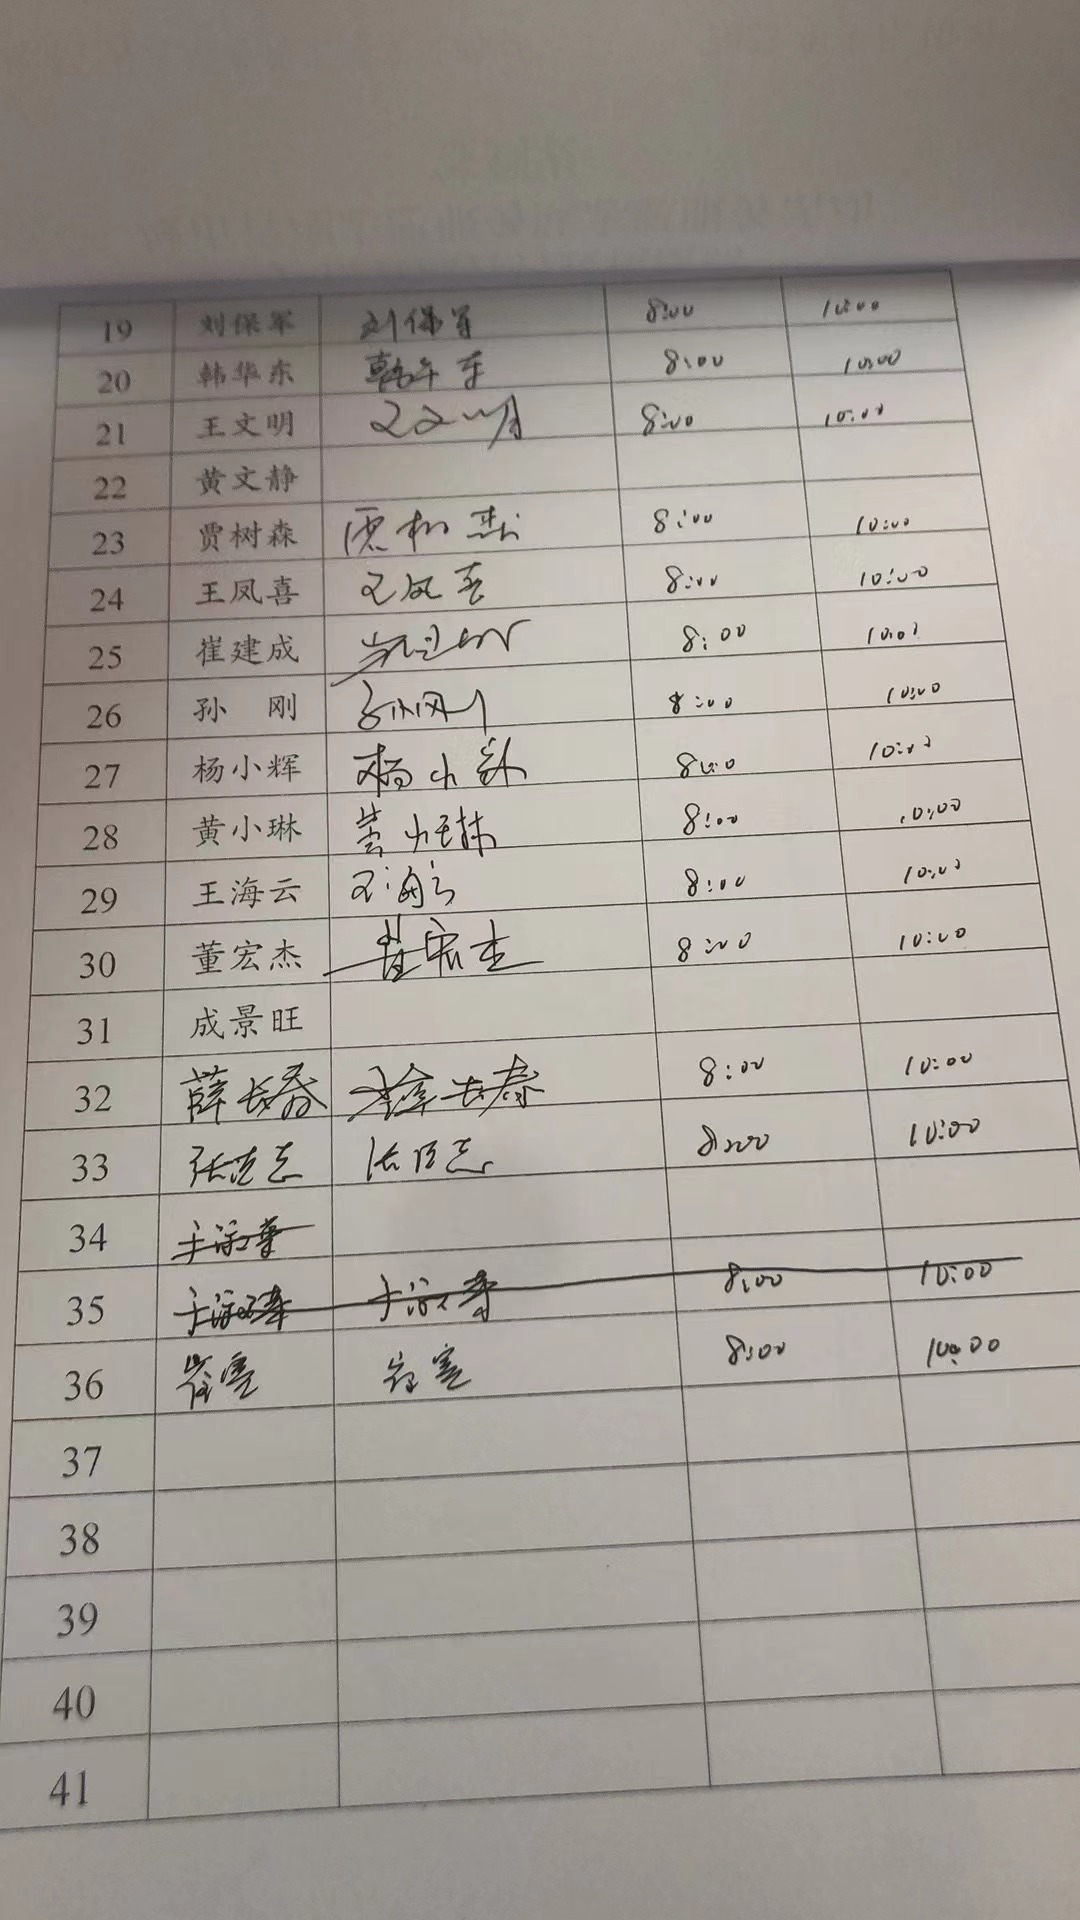 19 刘保军 刘保军 8:00 10:00
20 韩华东 韩华东 8:00 10:00
21 王文明 王文明 8:00 10:00
22 黄文静
23 贾树森 贾树森 8:00 10:00
24 王凤喜 王凤喜 8:00 10:00
25 崔建成 崔建成 8:00 10:00
26 孙 刚 孙刚 8:00 10:00
27 杨小辉 杨小辉 8:00 10:00
28 黄小琳 黄小琳 8:00 10:00
29 王海云 王海云 8:00 10:00
30 董宏杰 董宏杰 8:00 10:00
31 成景旺
32 薛长春 薛长春 8:00 10:00
33 8:00 10:00
34
35 8:00 10:00
36 8:00 10:00
37
38
39
40
41